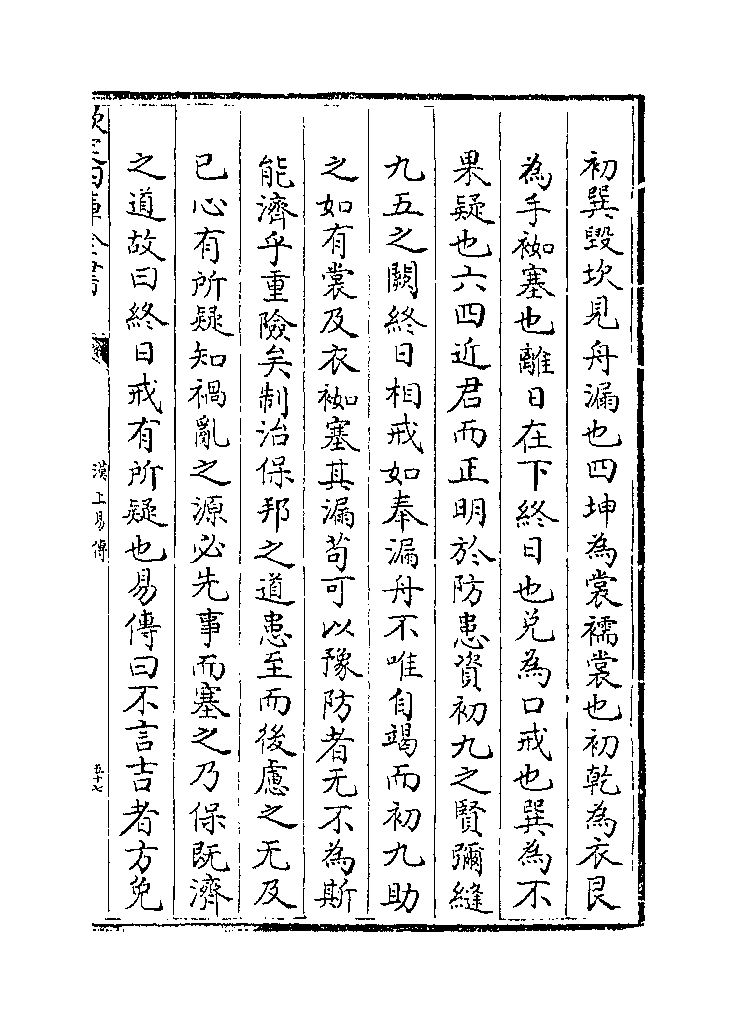 初巽毁坎見舟漏也四坤為裳襦裳也初乾為衣艮
為手袽塞也離日在下終日也兑為口戒也巽為不
果疑也六四近君而正明於防患資初九之賢彌縫
九五之闕終日相戒如奉漏舟不唯自竭而初九助
之如有裳及衣袽塞其漏苟可以豫防者无不為斯
能濟乎重險矣制治保邦之道患至而後慮之无及
已心有所疑知禍亂之源必先事而塞之乃保既濟
之道故曰終日戒有所疑也易傳曰不言吉者方免
欽定四庫全書
漢上易傳
五十七